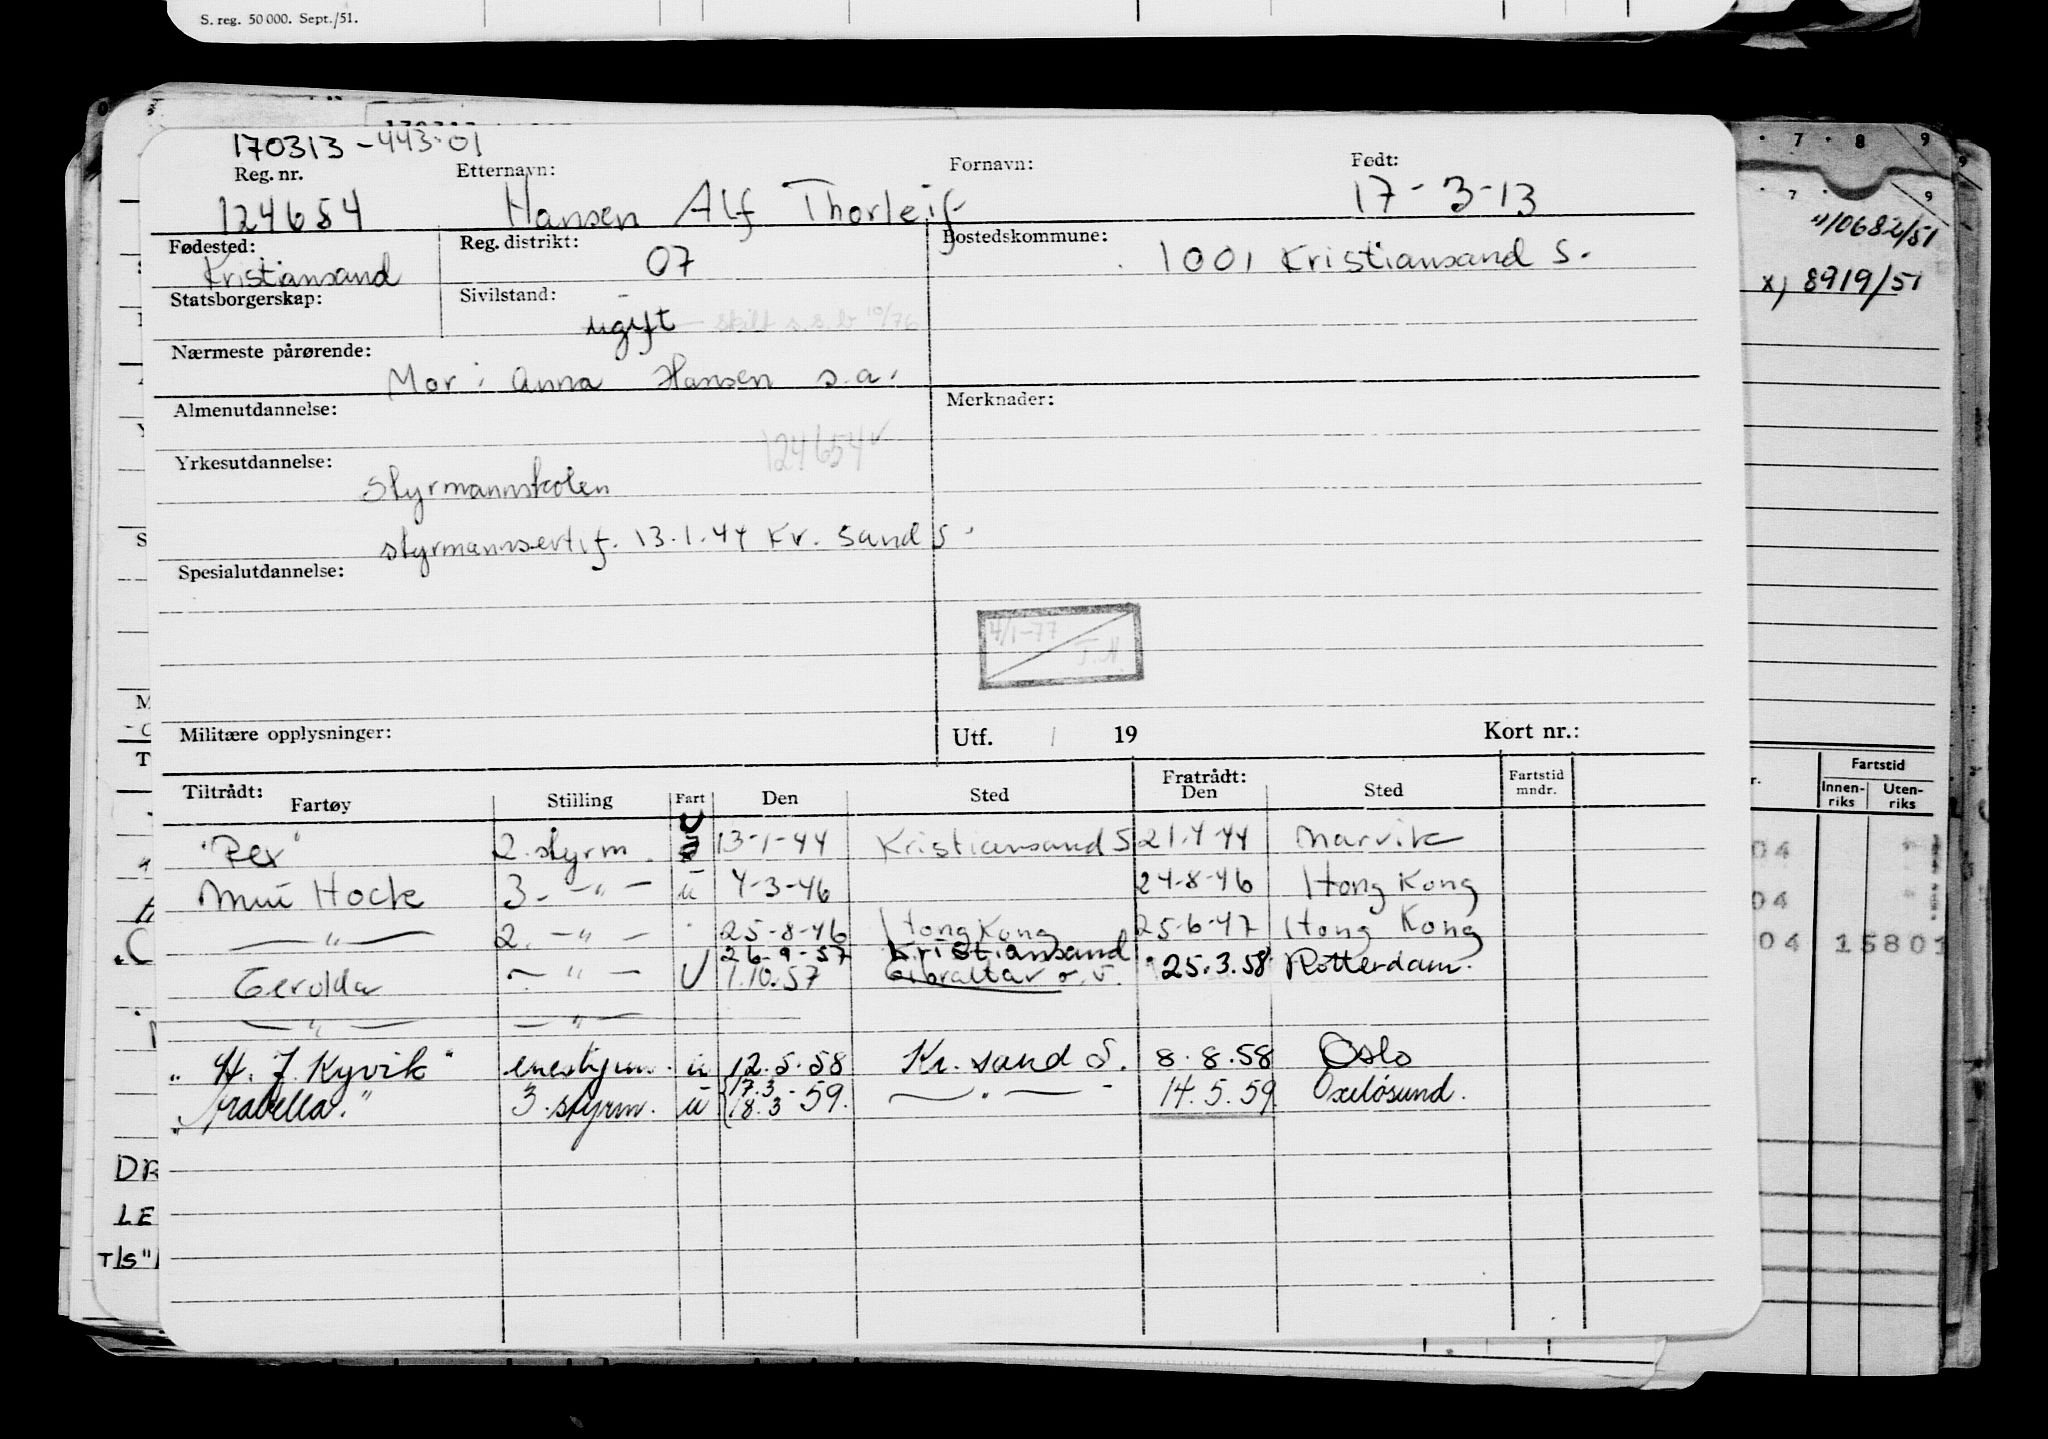 S. reg. 50 000. Sept./51.
170313-443-01
Reg. nr. Etternavn: Fornavn: Født:
124654 Hansen Alf Thorleif 17-3-13
Fødested: Reg. distrikt: Bostedskommune:
Kristiansand 07 1001 Kristiansand S.
Statsborgerskap: Sivilstand:
ugift skilt s.s.b 10/76
Nærmeste pårørende:
Mor: Anna Hansen s.a.
Almenutdannelse: Merknader:
124654
Yrkesutdannelse:
Styrmannskolen
styrmannsertif. 13.1.44 Kr. Sand S.
Spesialutdannelse:
4/1-77
Militære opplysninger: Utf. / 19 Kort nr.:
Tiltrådt: Fratrådt: Fartstid
Fartøy Stilling Fart Den Sted Den Sted mndr.
2. styrm. U 13-1-44 Kristiansand S 21.4.44 Narvik
Hock 3. -"- u 4-3-46 24-8-46 Hong Kong
-"- 2. -"- 25-8-46 Hong Kong 25-6-47 Hong Kong
26-9-57 Kristiansand
Gerolda -"- U 1.10.57 Gibraltar o.v. 25.3.58 Rotterdam.
-"- -"-
"H. J. Kyvik" enestyrm. u 12.5.58 Kr. sand S. 8.8.58 Oslo
17.3
"Arabella." 3. styrm. u 18.3-59. -"- 14.5.59 Oxelösund.
7 8 9
7 9
10682/51
x) 8919/51
Fartstid
Innen- Uten-
riks riks
04
04
04 15801
DR
LE
T/S"